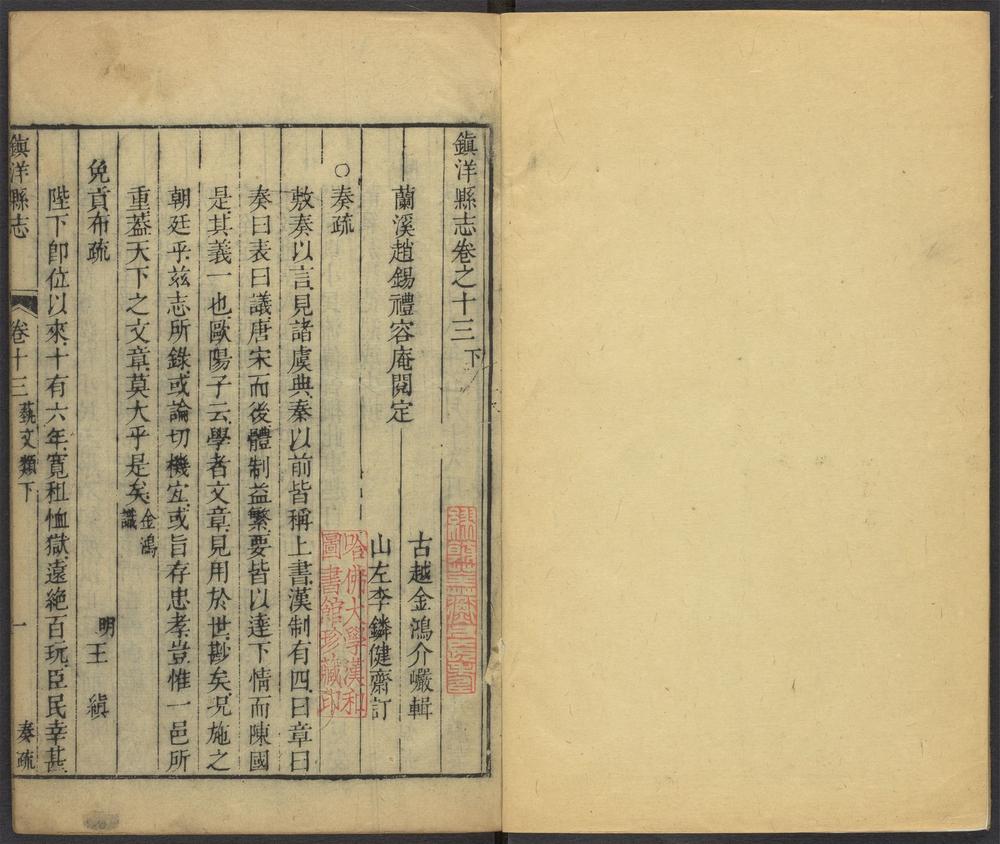 鎮洋縣志卷之十三下
蘭溪趙錫禮容庵閱定
古越金鴻介巘輯
山左李鏻健齋訂
○奏疏
敷奏以言見諸虞典秦以前皆稱上書漢制有四曰章曰
奏曰表曰議唐宋而後體制益繁要皆以達下情而陳國
是其義一也歐陽子云學者文章見用於世尠矣況施之
朝廷乎茲志所錄或論切機宜或旨存忠孝豈惟一邑所
重蓋天下之文章莫大乎是矣金鴻
識
免貢布疏
明王縝
陛下卽位以來十有六年寬租恤獄遠絕百玩臣民幸甚
鎮洋縣志
卷十三
藝文類下
一
奏疏
哈佛大學漢和
圖書館珍藏印